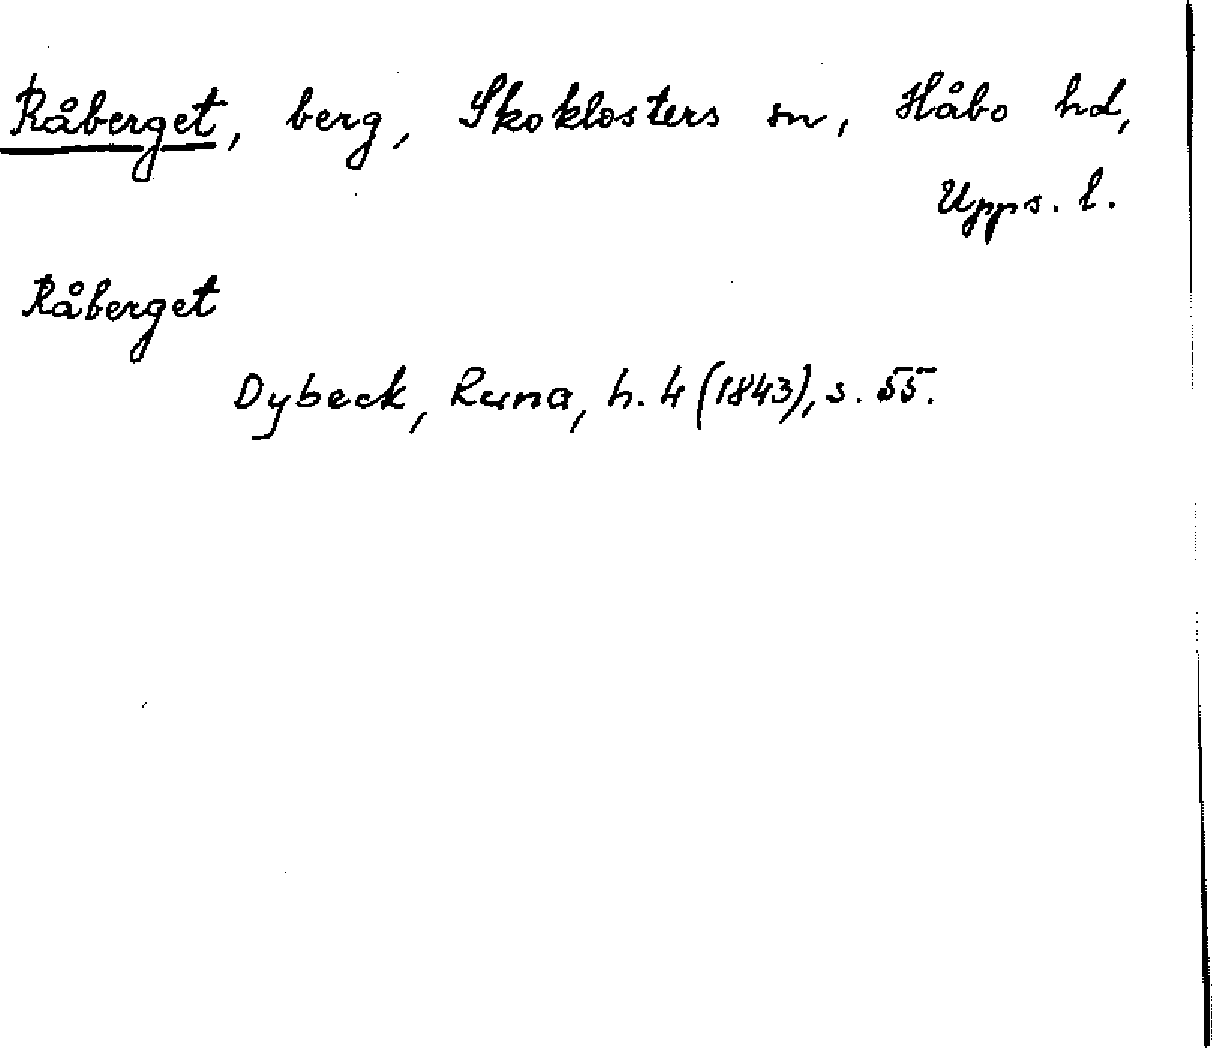 Råberget, berg, Skoklosters sn, Håbo hd,
Upps. l.
Råberget
Dybeck, Runa, h. 4 (1843), s. 55.